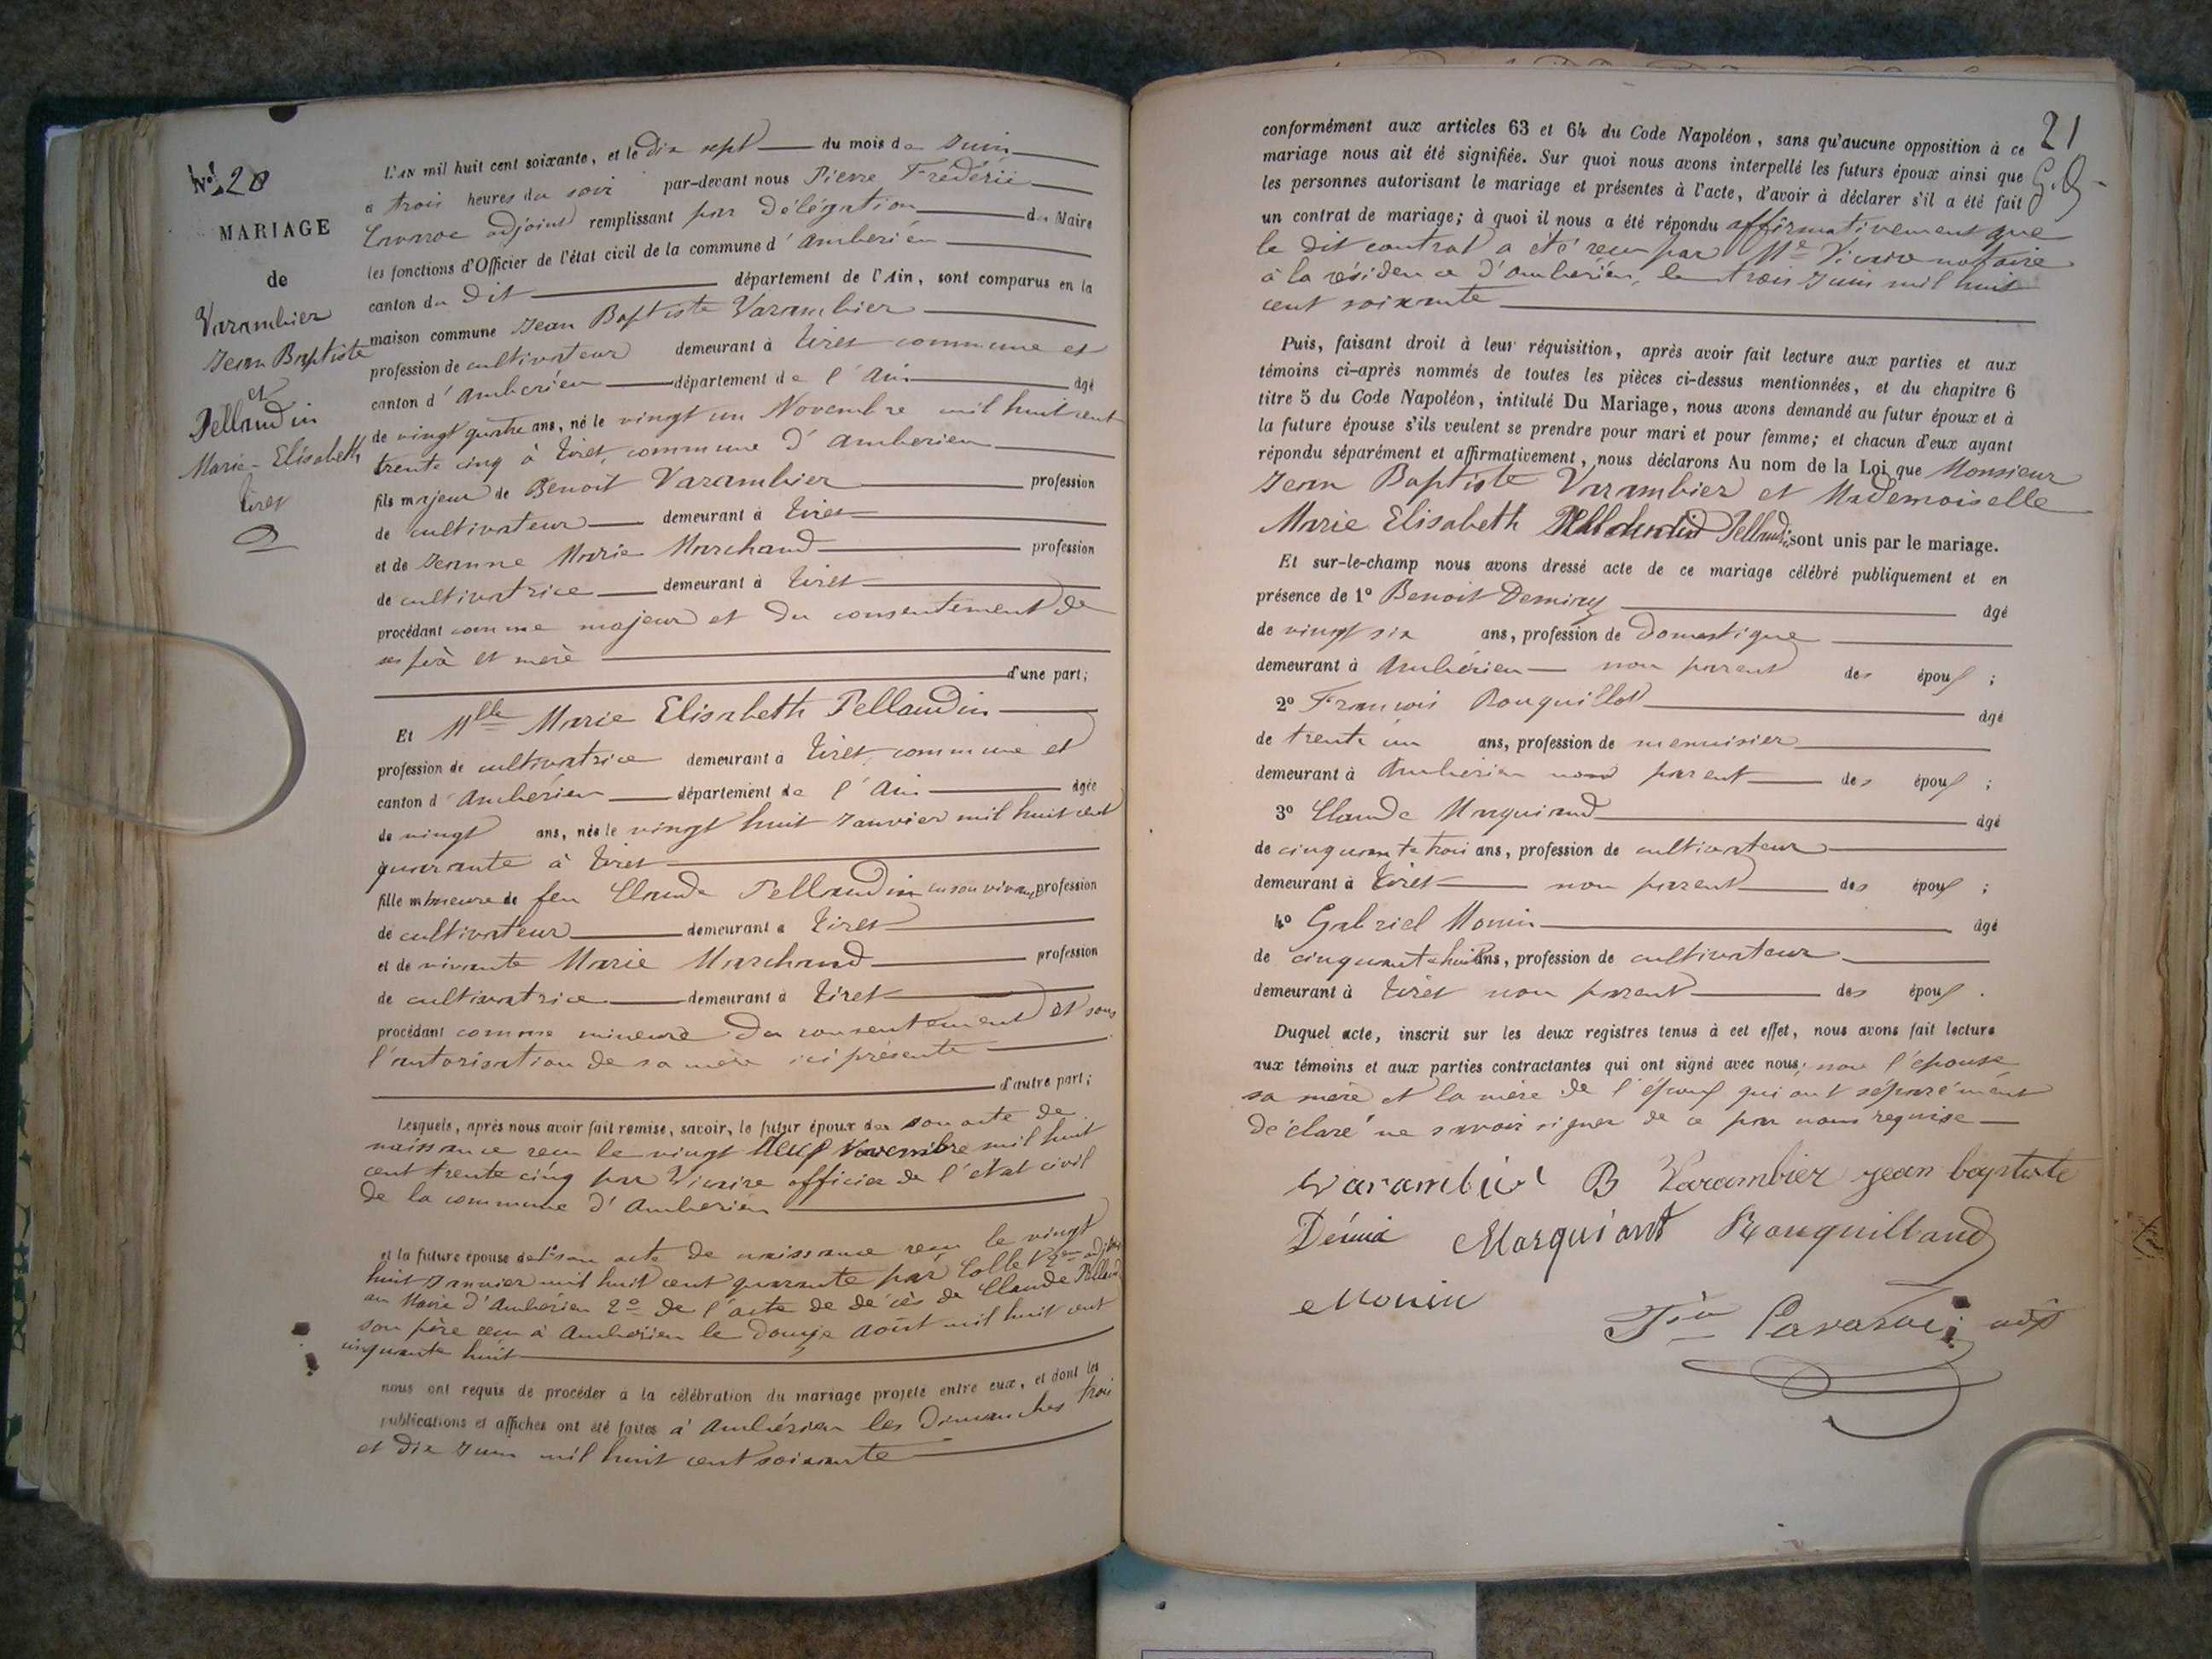 N° 20
MARIAGE
de
Varambier
Jean Baptiste
et
Pellaudin
Marie-Elisabeth
tiret
L'AN mil huit cent soixante, et le dix sept du mois de Juin
a trois heures du soir par-devant nous Pierre Fréderic
adjoint remplissant par délégation du Maire
les fonctions d'Officier de l'état civil de la commune d'Ambérieu
canton du Dit département de l'Ain, sont comparus en la
maison commune Jean Baptiste Varambier
profession de cultivateur demeurant à tiret commune et
canton d'Ambérieu département de l'Ain âgé
de vingt quatre ans, né le vingt un Novembre mil huit cent
trente cinq à tiret, commune d'Amberieu
fils majeur de Benoit Varambier profession
de cultivateur demeurant à tiret
et de Jeanne Marie Marchand profession
de cultivatrice demeurant à tiret
procédant comme majeur et du consentement de
ses père et mère
d'une part;
Et Mlle Marie Elisabeth Pellaudin
profession de cultivatrice demeurant à tiret, commune et
canton d'Ambérieu département de l'Ain âgée
de vingt ans, née le vingt huit Janvier mil huit cent
quarante à tiret
fille mineure de feu Claude Pellaudin en son vivant profession
de cultivateur demeurant à tiret
et de vivante Marie Marchand profession
de cultivatrice demeurant à tiret
procédant comme mineure du consentement et sous
l'autorisation de sa mère ici présente
d'autre part;
Lesquels, après nous avoir fait remise, savoir, le futur époux de son acte de
naissance reçu le vingt neuf Novembre mil huit
cent trente cinq par Vicaire officier de l'état civil
de la commune d'Amberieu
et la future épouse de 1° son acte de naissance reçu le vingt
huit Janvier mil huit cent quarante par Collet 2em adjoint
au Maire d'Ambérieu 2° de l'acte de décès de Claude Pellaud
son père reçu à Ambérieu le douze Août mil huit cent
cinquante huit
nous ont requis de procéder à la célébration du mariage projeté entre eux, et dont les
publications et affiches ont été faites à Ambérieu les Dimanches trois
et dix Juin mil huit cent soixante
21
conformément aux articles 63 et 64 du Code Napoléon, sans qu'aucune opposition à ce
mariage nous ait été signifiée. Sur quoi nous avons interpellé les futurs époux ainsi que
les personnes autorisant le mariage et présentes à l'acte, d'avoir à déclarer s'il a été fait
un contrat de mariage; à quoi il nous a été répondu affirmativement que
le dit contrat a été reçu par Me Vicaire notaire
à la résidence d'Ambérieu, le trois Juin mil huit
cent soixante
Puis, faisant droit à leur réquisition, après avoir fait lecture aux parties et aux
témoins ci-après nommés de toutes les pièces ci-dessus mentionnées, et du chapitre 6
titre 5 du Code Napoléon, intitulé Du Mariage, nous avons demandé au futur époux et à
la future épouse s'ils veulent se prendre pour mari et pour femme; et chacun d'eux ayant
répondu séparément et affirmativement, nous déclarons Au nom de la Loi que Monsieur
Jean Baptiste Varambier et Mademoiselle
Marie Elisabeth Pellaudin sont unis par le mariage.
Et sur-le-champ nous avons dressé acte de ce mariage célébré publiquement et en
présence de 1° Benoit âgé
de vingt six ans, profession de Domestique
demeurant à Ambérieu non parent des époux;
2° François Rouquillot âgé
de trente un ans, profession de menuisier
demeurant à Ambérieu non parent des époux;
3° Claude Marquiand âgé
de cinquante trois ans, profession de cultivateur
demeurant à tiret non parent des époux;
4° Gabriel Monin âgé
de cinquante huit ans, profession de cultivateur
demeurant à tiret non parent des époux.
Duquel acte, inscrit sur les deux registres tenus à cet effet, nous avons fait lecture
aux témoins et aux parties contractantes qui ont signé avec nous, non l'épouse
sa mère et la mère de l'époux qui ont séparément
déclaré ne savoir signer de ce par nous requise
Varambier B Varambier jean baptiste
Démia Marquiant Rouquilland
Monin
adj